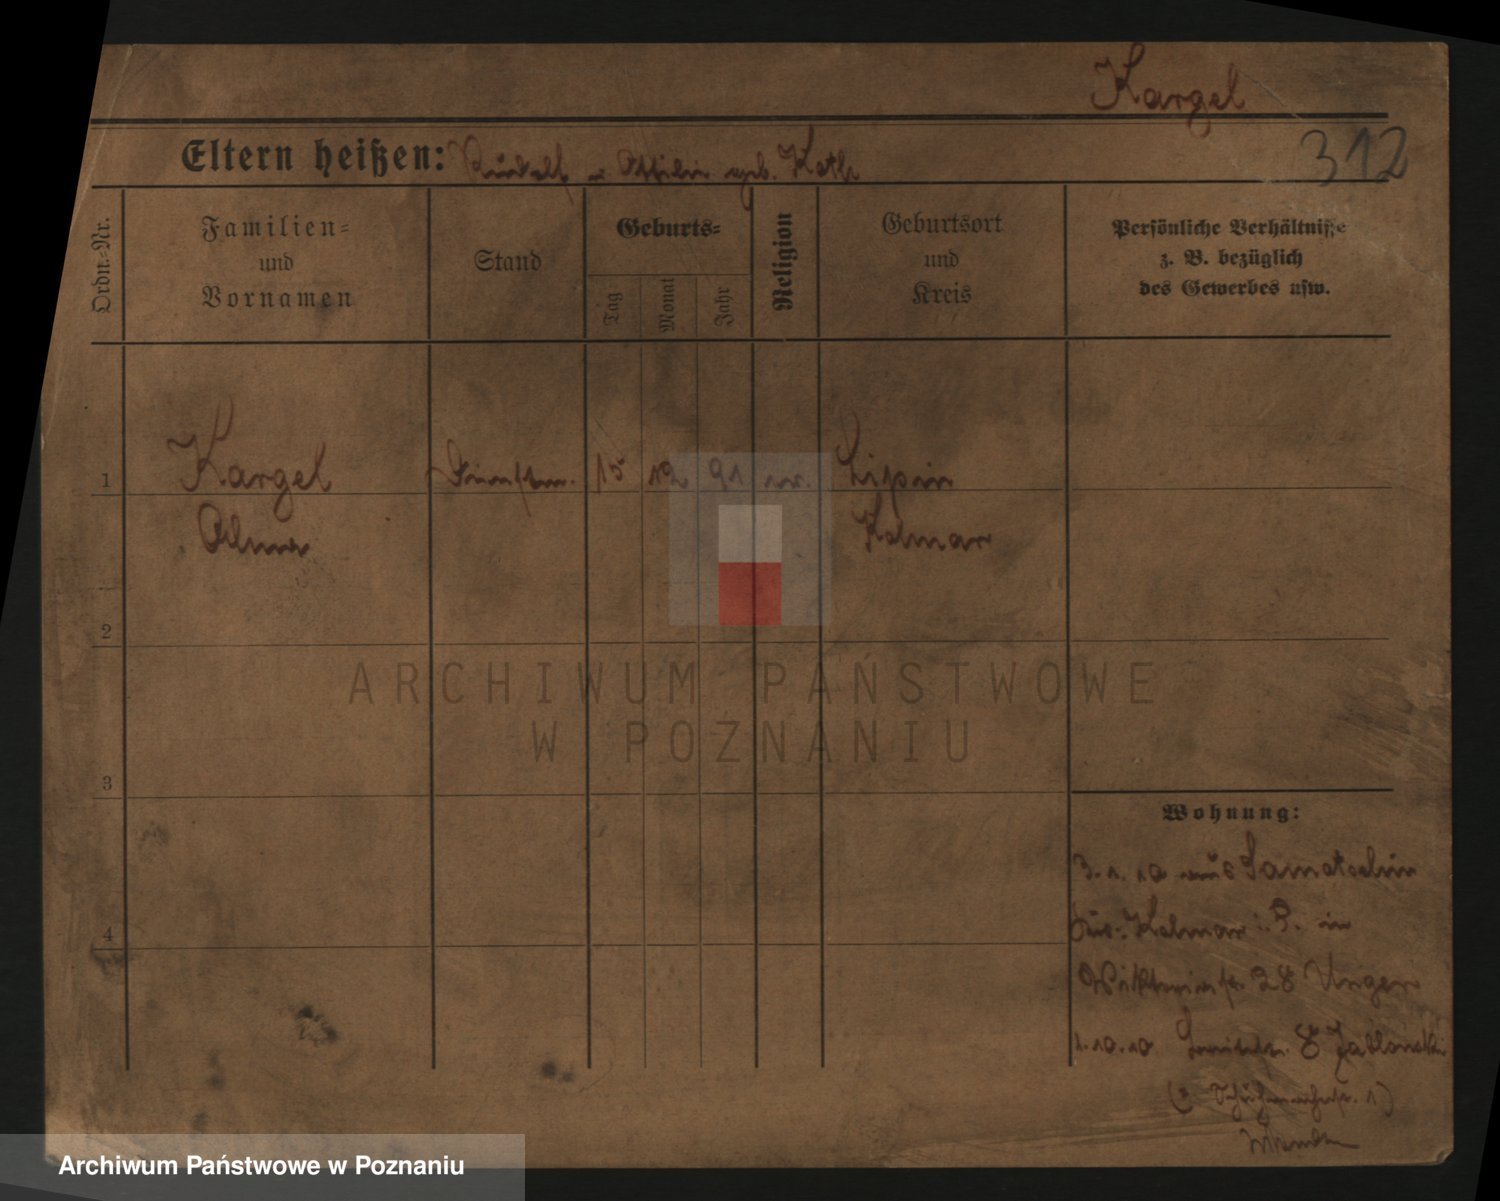 Kargel
312
Eltern heißen: Rudolf u Ottilie geb. Koth
Ordn.-Nr.
Familien-
und
Vornamen
Stand
Geburts-
Tag
Monat
Jahr
Religion
Geburtsort
und
Kreis
Persönliche Verhältnisse
z. B. bezüglich
des Gewerbes usw.
1
Kargel
15 12 91 ev. Lipin
Kolmar
2
3
4
Wohnung:
3.1.10 aus Samotschin
Kolmar i. P. in
Viktoriastr. 28 Unger
1.10.10 8 Jablonski
Schuhmacherstr. 1)
ARCHIWUM PAŃSTWOWE
W POZNANIU
Archiwum Państwowe w Poznaniu